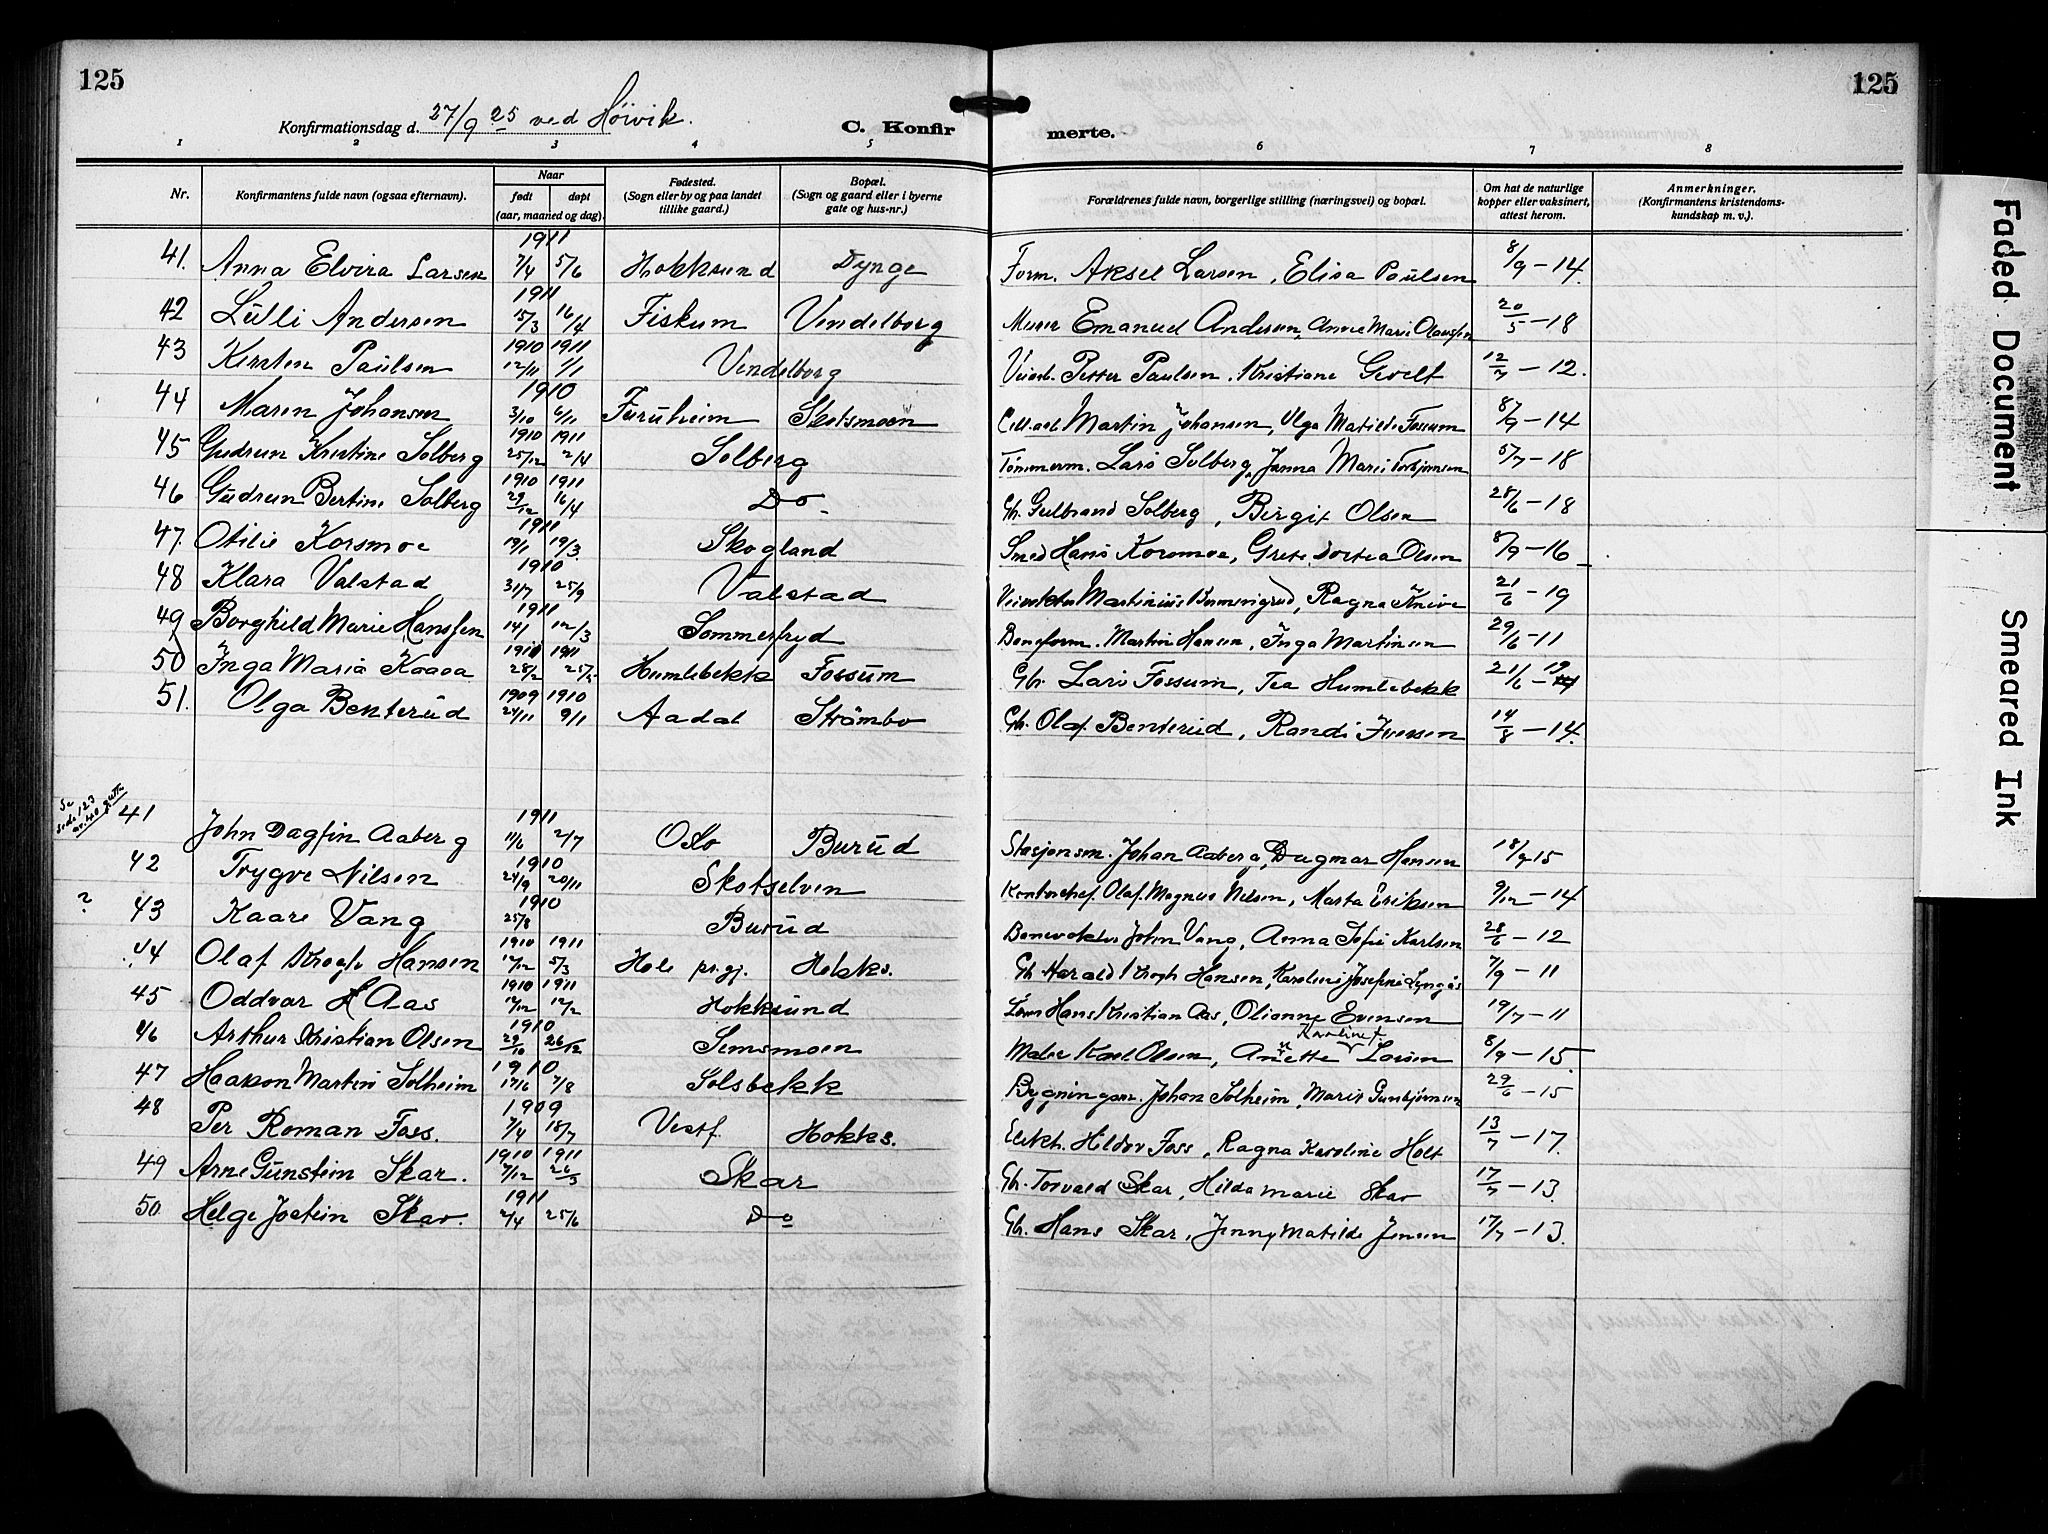 125
125
Konfirmationsdag d. 27/9 25 ved Hövik.
C. Konfir
merte.
1 2 3 4 5 6 7 8
Nr.
Konfirmantens fulde navn (ogsaa efternavn).
Naar
født døpt
(aar, maaned og dag).
Fødested.
(Sogn eller by og paa landet
tillike gaard.)
Bopæl.
(Sogn og gaard eller i byerne
gate og hus-nr.)
Forældrenes fulde navn, borgerlige stilling (næringsvei) og bopæl.
Om hat de naturlige
kopper eller vaksinert,
attest herom.
Anmerkninger.
(Konfirmantens kristendoms-
kundskap m. v.).
41. Anna Elvira Larsen 1911 7/4 5/6 Hokksund Dynge Form. Aksel Larsen, Elisa Paulsen 8/9 – 14.
42 Lulli Andersen 1911 15/3 16/4 Fiskum Vendelborg Murer Emanuel Andersen, Anne Marie Olaussen 20/5 – 18
43 Kirsten Paulsen 1910 1911 12/11 1/1 Vendelborg Petter Paulsen, Kristiane 12/7 – 12.
44 Maren Johansen 1910 3/10 6/11 Furuheim Skotsmoen Cell.arb. Martin Johansen, Olga Matilde Fossum 8/9 – 14
45 Gudrun Kristine Solberg 1910 1911 25/12 2/4 Solberg Tömmerm. Lars Solberg, Janna Marie Torbjørnsen 5/7 – 18
46 Gudrun Bertine Solberg 1910 1911 29/12 16/4 Do. Gbr. Gulbrand Solberg, Birgit Olsen 28/6 – 18
47. Otilie Korsmoe 1911 19/1 19/3 Skogland Smed Hans Korsmoe, Grete Dortea Olsen 8/9 – 16
48 Klara Valstad 1910 31/7 25/9 Valstad Veivokter Martinius, Ragna Knive 21/6 – 19
49 Borghild Marie Hanssen 1911 14/1 12/3 Sommerfryd Baneform. Martin Hansen, Inga Martinsen 29/6 – 11
50 Inga Maria Kaasa 1911 28/2 25/5 Humlebekk Fossum Gbr. Lars Fossum, Tea Humlebekk 21/6 – 19
51. Olga Benterud 1909 1910 24/11 9/1 Aadal Strömbo Gbr. Olaf Benterud, Randi Iversen 14/8 – 14.
Se
side 123
nr. 40 gutte
41 John Dagfin Aaberg 1911 11/6 2/7 Oslo Burud Stasjonsm. Johan Aaberg, Dagmar Hansen 18/9 15
42 Trygve Nilsen 1910 24/9 20/11 Skotselven Kontorchef Olaf Magnus Nilsen, Marta Eriksen 9/12 – 14
? 43 Kaare Vang 1910 25/8 Burud Banevokter John Vang, Anna Sofie Karlsen 28/6 – 12
44 Olaf Krogh Hansen 1910 1911 12/12 5/3 Hole pr.gj. Hokks. Gbr. Harald Krogh Hansen, Karoline Josefine Lyngås 7/9 – 11
45 Oddvar H Aas 1910 1911 12/12 12/2 Hokksund Hans Kristian Aas, Olianne Evensen 19/7 – 11
46 Arthur Kristian Olsen 1910 29/10 26/12 Semsmoen Maler Karl Olsen, Anette Karoline Larsen 8/9 – 15
47 Haakon Martin Solheim 1910 17/6 7/8 Solsbekk Bygningsm. Johan Solheim, Marie Gunbjørnsen 29/6 – 15
48 Per Roman Foss. 1909 7/4 18/7 Vestf. Hokks. Elekt. Hildor Foss, Ragna Karoline Holt 13/7 – 17.
49 Arne Gunstein Skar. 1910 1911 7/12 26/3 Skar Gbr. Torvald Skar, Hilda Marie Skar 17/7 – 13.
50 Helge Jostein Skar. 1911 2/4 25/6 Do Gbr. Hans Skar, Jenny Matilde Jensen 17/7 – 13.
Faded Document
Smeared Ink